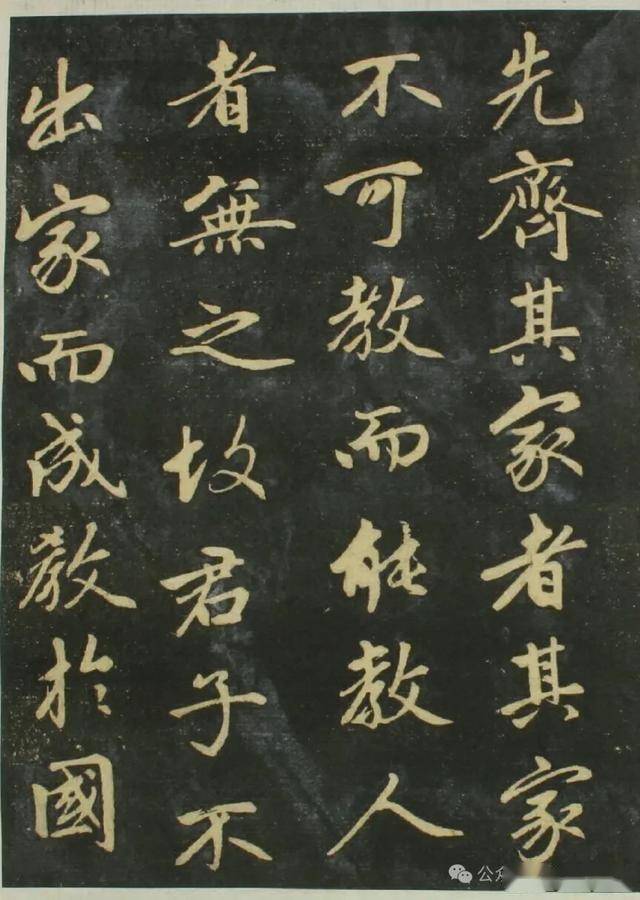 先齊其家者其家
不可教而能教人
者無之故君子不
出家而成教於國
公众